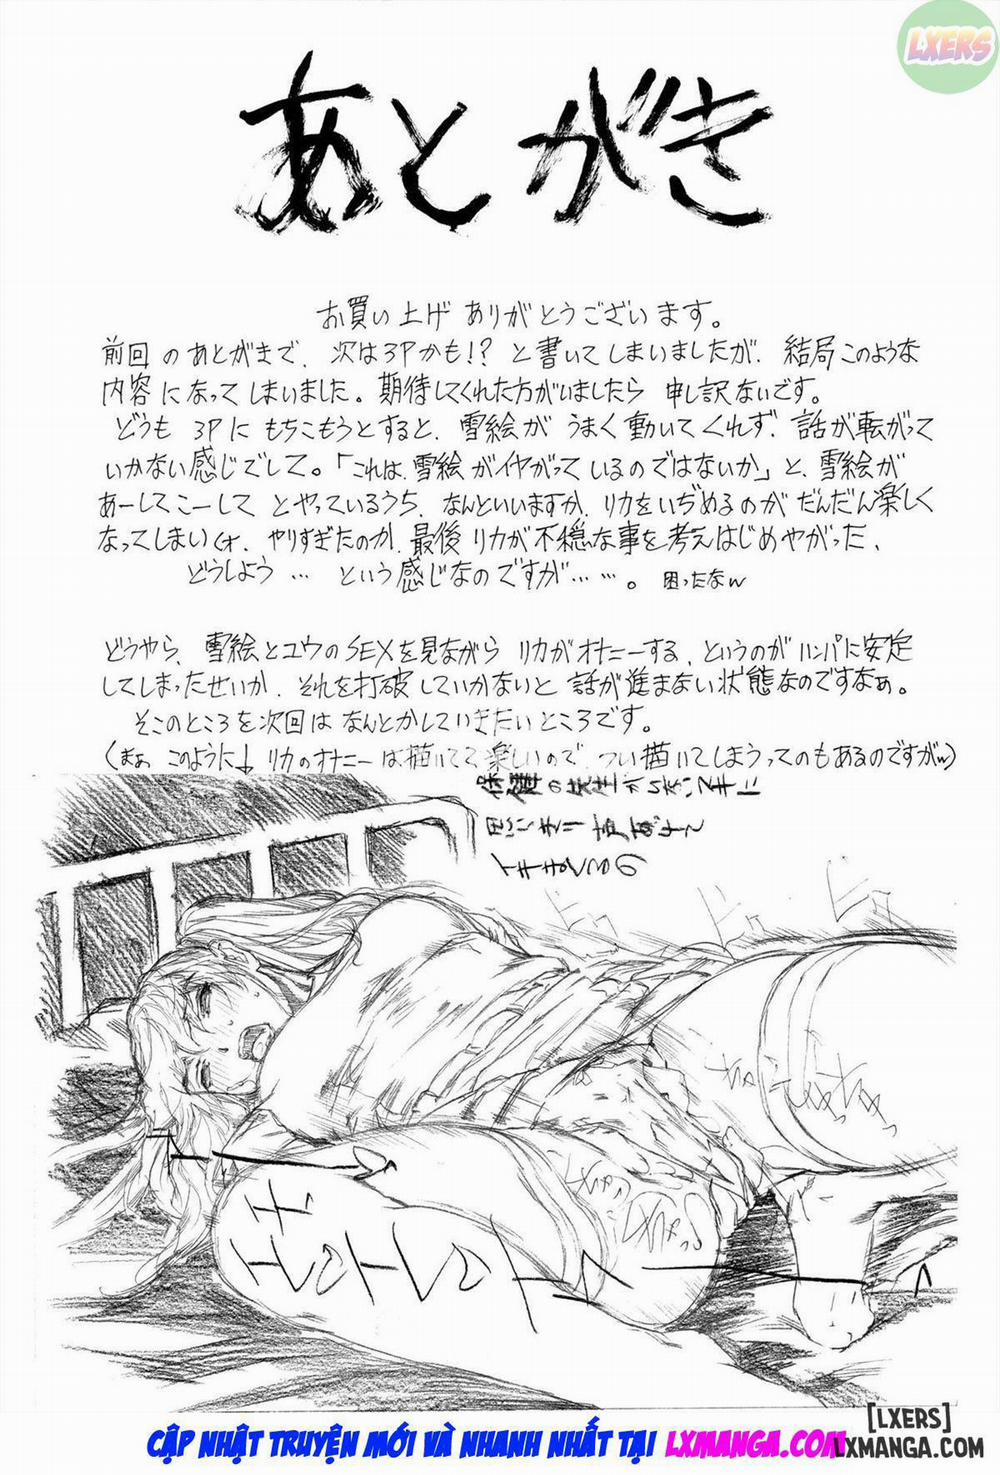 LXERS
あとがき
お買い上げ ありがとうございます。
前回のあとがきで、次は3Pかも!? と書いてしまいましたが、結局このような
内容になってしまいました。期待してくれた方がいましたら 申し訳ないです。
どうも 3Pに もちこもうとすると、雪絵が うまく動いてくれず、話が転がって
いかない感じでして。「これは、雪絵がイヤがっているのではないか」と、雪絵が
あーしてこーして とやっているうち、なんといいますか、リカをいぢめるのが だんだん楽しく
なってしまい(オ、やりすぎたのか、最後 リカが不穏な事を考えはじめやがった、
どうしよう … という感じなのですが……。 困ったなw
どうやら、雪絵とユウのSEXを見ながら リカがオナニーする、というのが ハンパに安定
してしまったせいか、それを打破していかないと 話が進まない状態なのですなぁ。
そこのところを次回は なんとかしていきたいところです。
(まぁ このように↓ リカのオナニーは描いてて楽しいので、つい描いてしまうってのもあるのですがw)
[LXERS]
LXMANGA.COM
CẬP NHẬT TRUYỆN MỚI VÀ NHANH NHẤT TẠI LXMANGA.COM